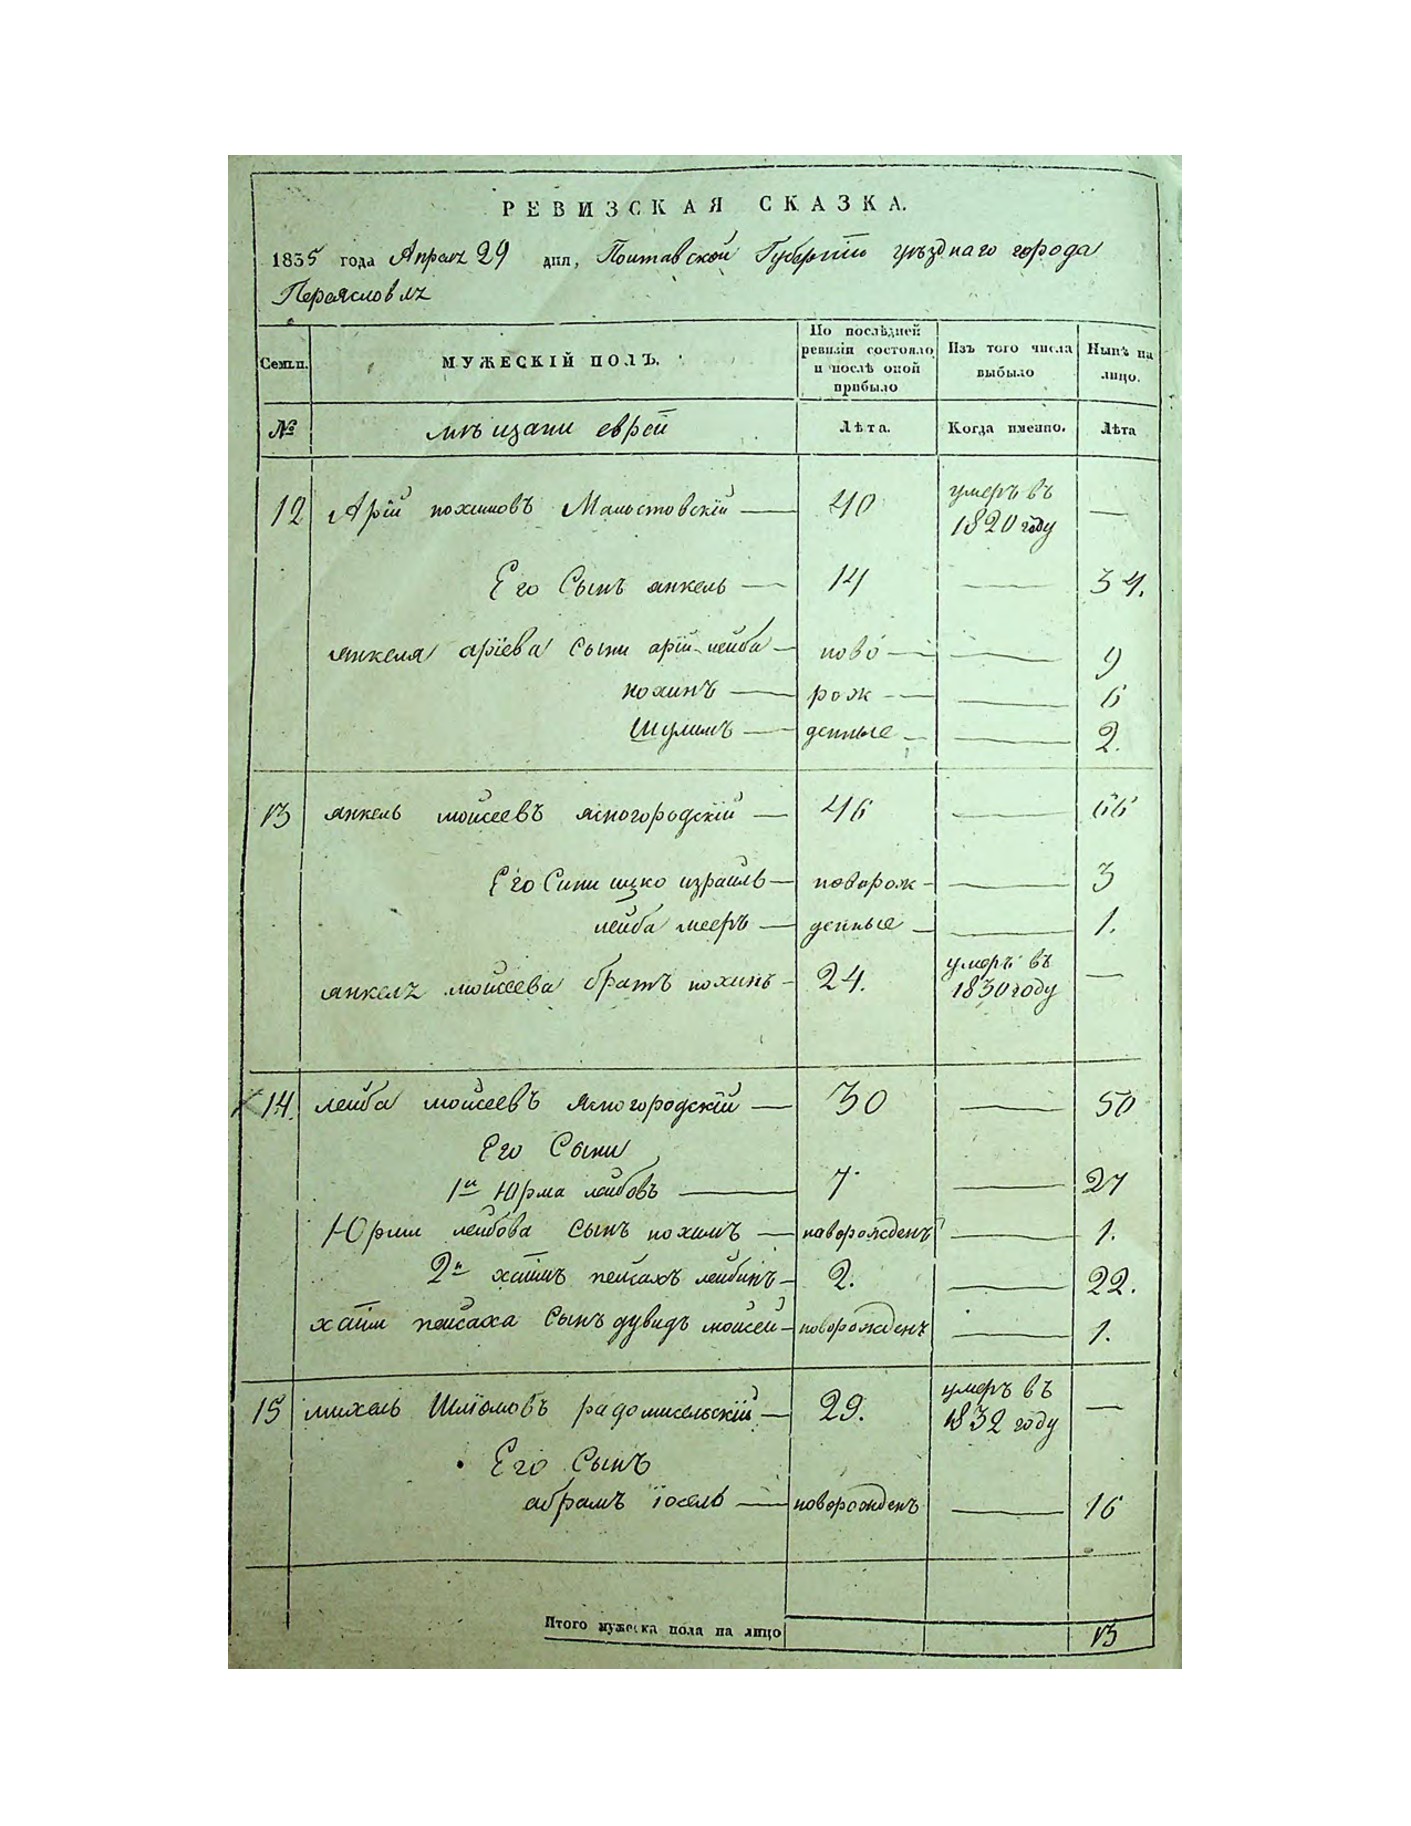 РЕВИЗСКАЯ СКАЗКА.
1835 года Апреля 29 дня, Полтавской Губернїи уѣзднаго города
Переяславля
Семьи. МУЖЕСКІЙ ПОЛЪ. По послѣдней ревизіи состояло и послѣ оной прибыло Изъ того числа выбыло Нынѣ на лицо.
№ мѣщани еврей Лѣта. Когда именно. Лѣта
12 Арїй нохимовъ 40 умеръ въ 1820 году —
Его Сынъ янкель — 14 — 34.
янкеля арїева сыни арїй лейба — ново — — 9
нохимъ — рож — — 6
Шулимъ — денные — — 2.
13 янкель мойсеевъ ясногородскїй — 46 — 66
Его Сини ицко израиль — новорож — — 3
лейба мееръ — денные — — 1.
янкеля мойсеева братъ нохимъ — 24. умеръ въ 1830 году —
14. лейба мойсеевъ ясногородскїй — 30 — 50
Его Сыни
1й Юрма лейбовъ — 7 — 27
Юрми лейбова сынъ нохимъ — наворожденъ — 1.
2й хаїмъ пейсахъ лейбинъ — 2. — 22.
хаїм пейсаха сынъ дувидъ мойсей — новорожденъ — 1.
15 михель Шлїомовъ радомисельскїй — 29. умеръ въ 1832 году —
Его Сынъ
абрамъ їосель — новорожденъ — 16
Итого мужеска пола на лицо 13